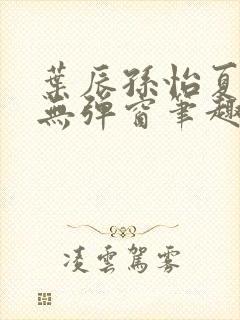 葉辰孫怡夏
無彈窗筆趣
凌雲駕霧